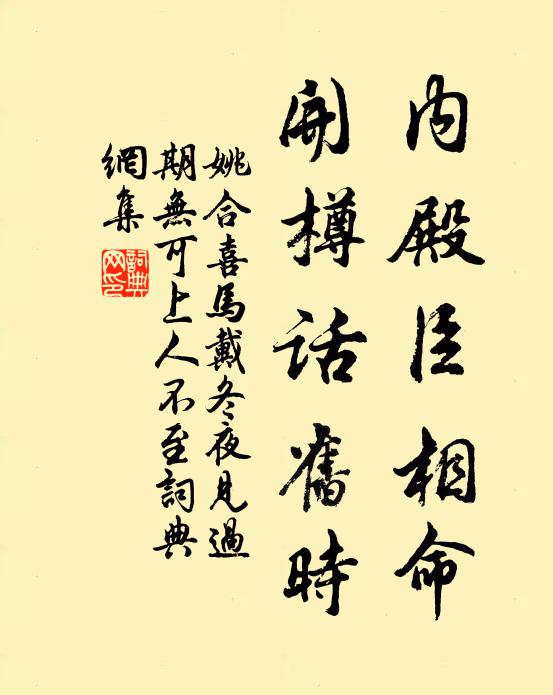 内殿臣相命
開樽話舊時
姚合喜馬戴冬夜見過
期無可上人不至詞典
網集
詞典
网印